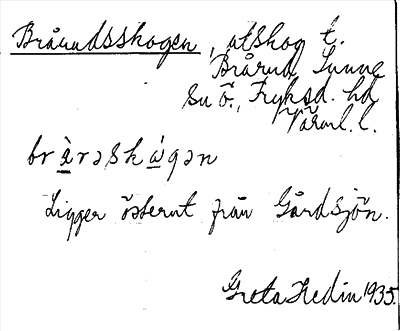 Brårudsskogen, utskog t.
Brårud, Sunne
sn ö., Fryksd. hd
Värml. l.
brὰ̱rəskὼ̱gən
Ligger österut från Gårdsjön.
Greta Hedin 1935.